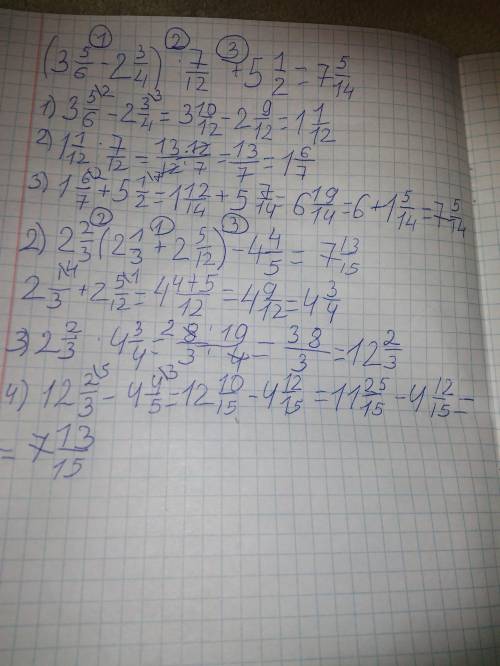 (3 5/6 - 2 3/4) : 7/12 + 5 1/2 = 7 5/14
1) 3 5/6 - 2 3/4 = 3 10/12 - 2 9/12 = 1 1/12
2) 1 1/12 : 7/12 = 13·12/12·7 = 13/7 = 1 6/7
3) 1 6/7 + 5 1/2 = 1 12/14 + 5 7/14 = 6 19/14 = 6 + 1 5/14 = 7 5/14
2) 2 2/3 (2 1/3 + 2 5/12) - 4 4/5 = 7 13/15
2 1/3 + 2 5/12 = 4 4+5/12 = 4 9/12 = 4 3/4
3) 2 2/3 · 4 3/4 = 8·19/3·4 = 38/3 = 12 2/3
4) 12 2/3 - 4 4/5 = 12 10/15 - 4 12/15 = 11 25/15 - 4 12/15 =
= 7 13/15